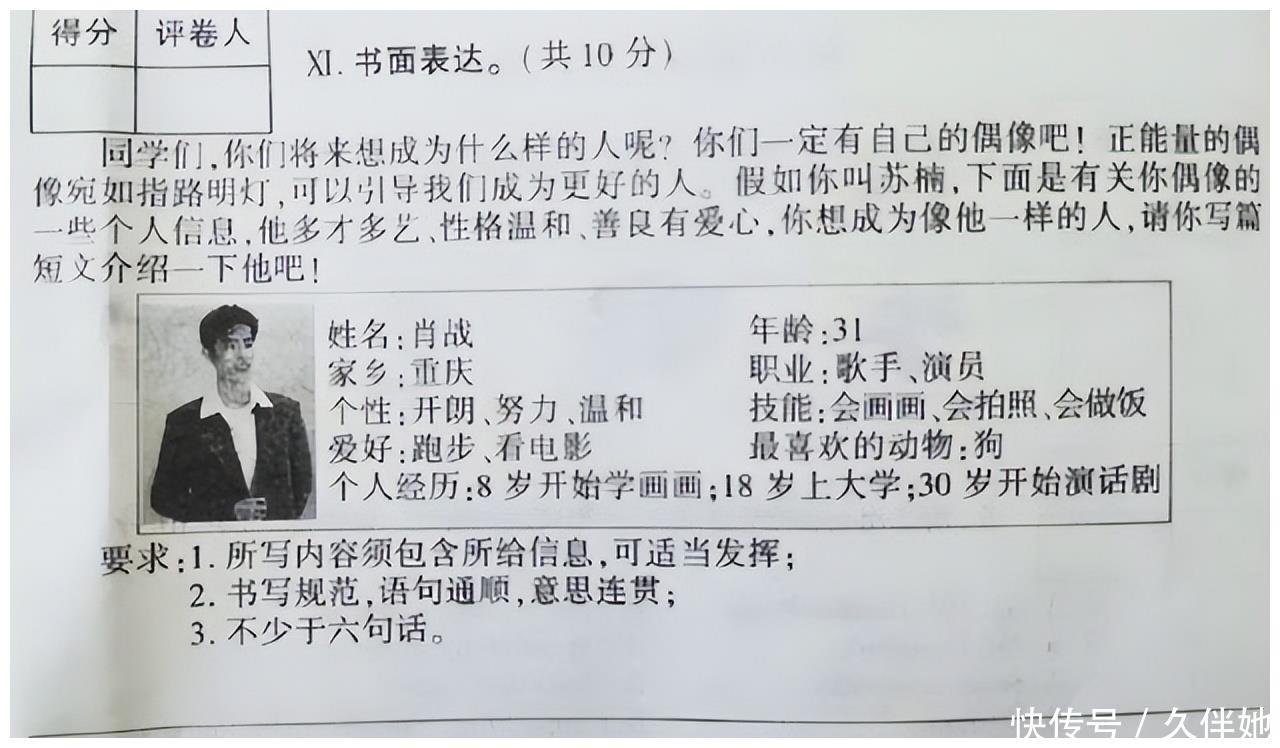 得分 评卷人
Ⅺ. 书面表达。(共 10 分)
同学们,你们将来想成为什么样的人呢? 你们一定有自己的偶像吧! 正能量的偶
像宛如指路明灯,可以引导我们成为更好的人。假如你叫苏楠,下面是有关你偶像的
一些个人信息,他多才多艺、性格温和、善良有爱心,你想成为像他一样的人,请你写篇
短文介绍一下他吧!
姓名:肖战 年龄:31
家乡:重庆 职业:歌手、演员
个性:开朗、努力、温和 技能:会画画、会拍照、会做饭
爱好:跑步、看电影 最喜欢的动物:狗
个人经历:8 岁开始学画画;18 岁上大学;30 岁开始演话剧
要求:1. 所写内容须包含所给信息,可适当发挥;
2. 书写规范,语句通顺,意思连贯;
3. 不少于六句话。
快传号 / 久伴她